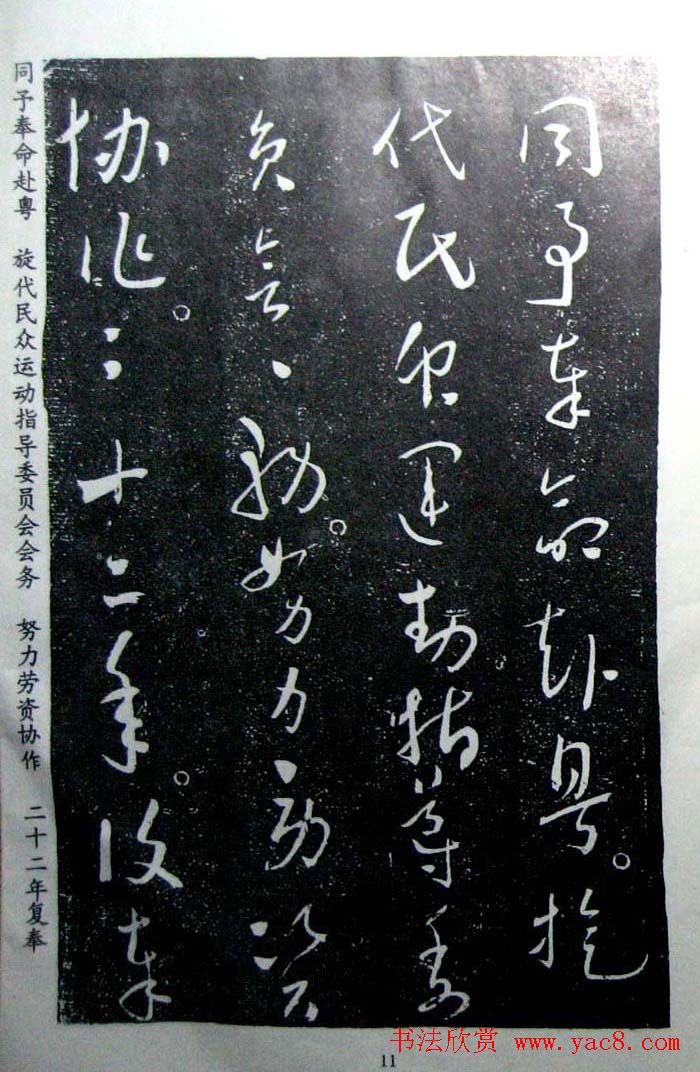 同予奉命赴粤。旋
代民众运动指导委
员会、务。努力劳资
协作。二十二年。复奉
同予奉命赴粤 旋代民众运动指导委员会会务 努力劳资协作 二十二年复奉
书法欣赏 www.yac8.com
11